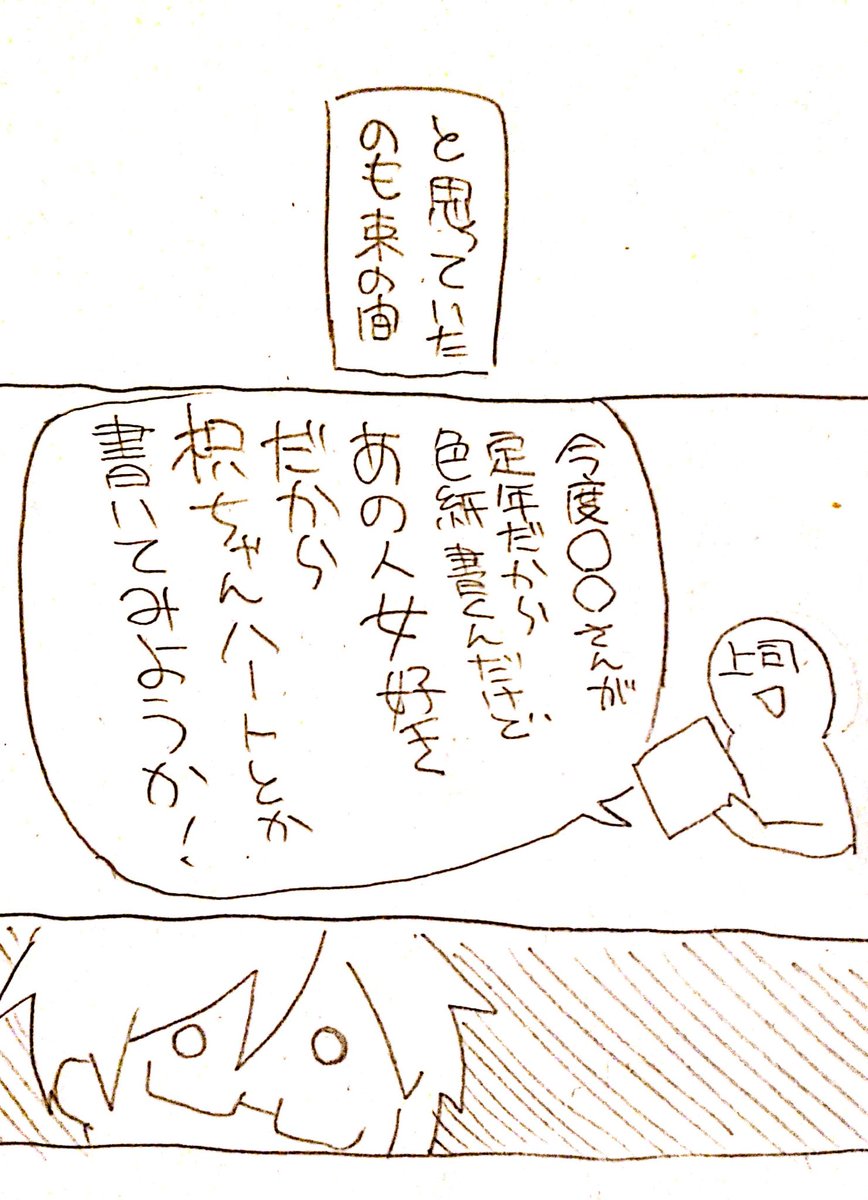 と思っていた
のも束の間
今度〇〇さんが
定年だから
色紙書くんだけど
あの人女好き
だから
枳ちゃんハートとか
書いてみようか!
上司